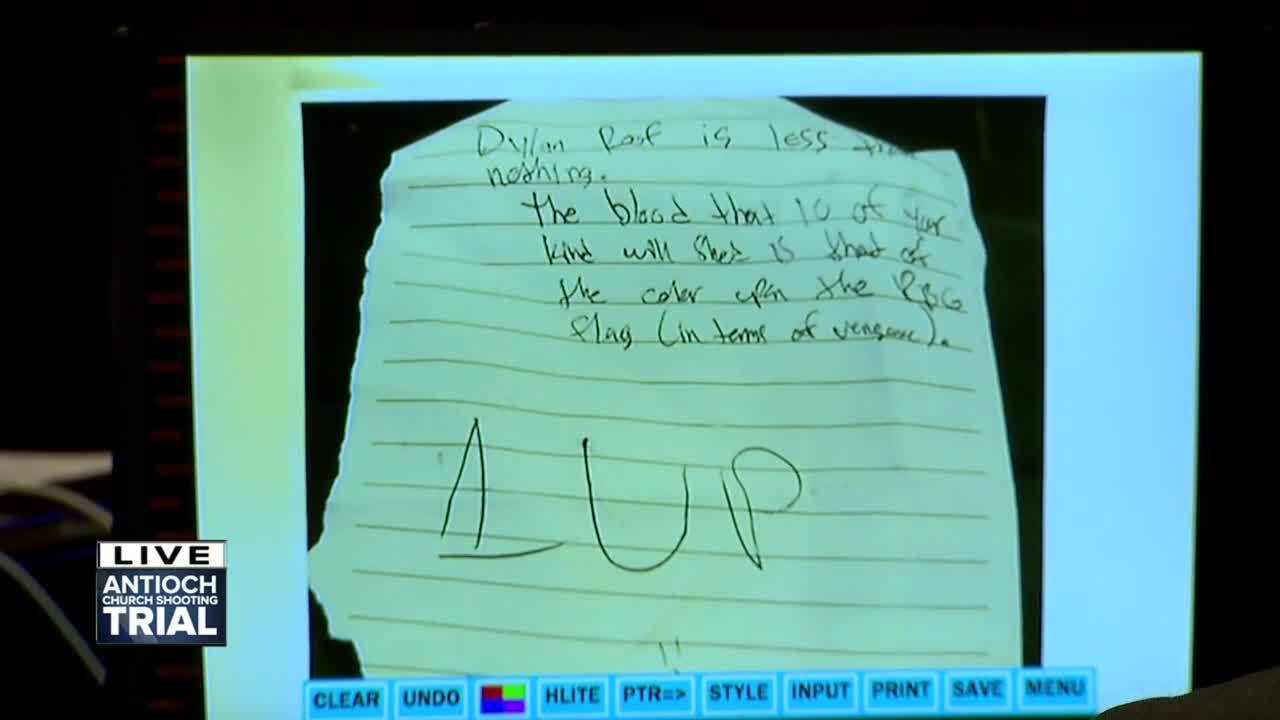 Dylan Roof is less than
nothing.
The blood that 10 of your
kind will shed is that of
the color upon the RBG
flag (in terms of vengeance).
1 UP
LIVE
ANTIOCH
CHURCH SHOOTING
TRIAL
CLEAR UNDO HLITE PTR=> STYLE INPUT PRINT SAVE MENU